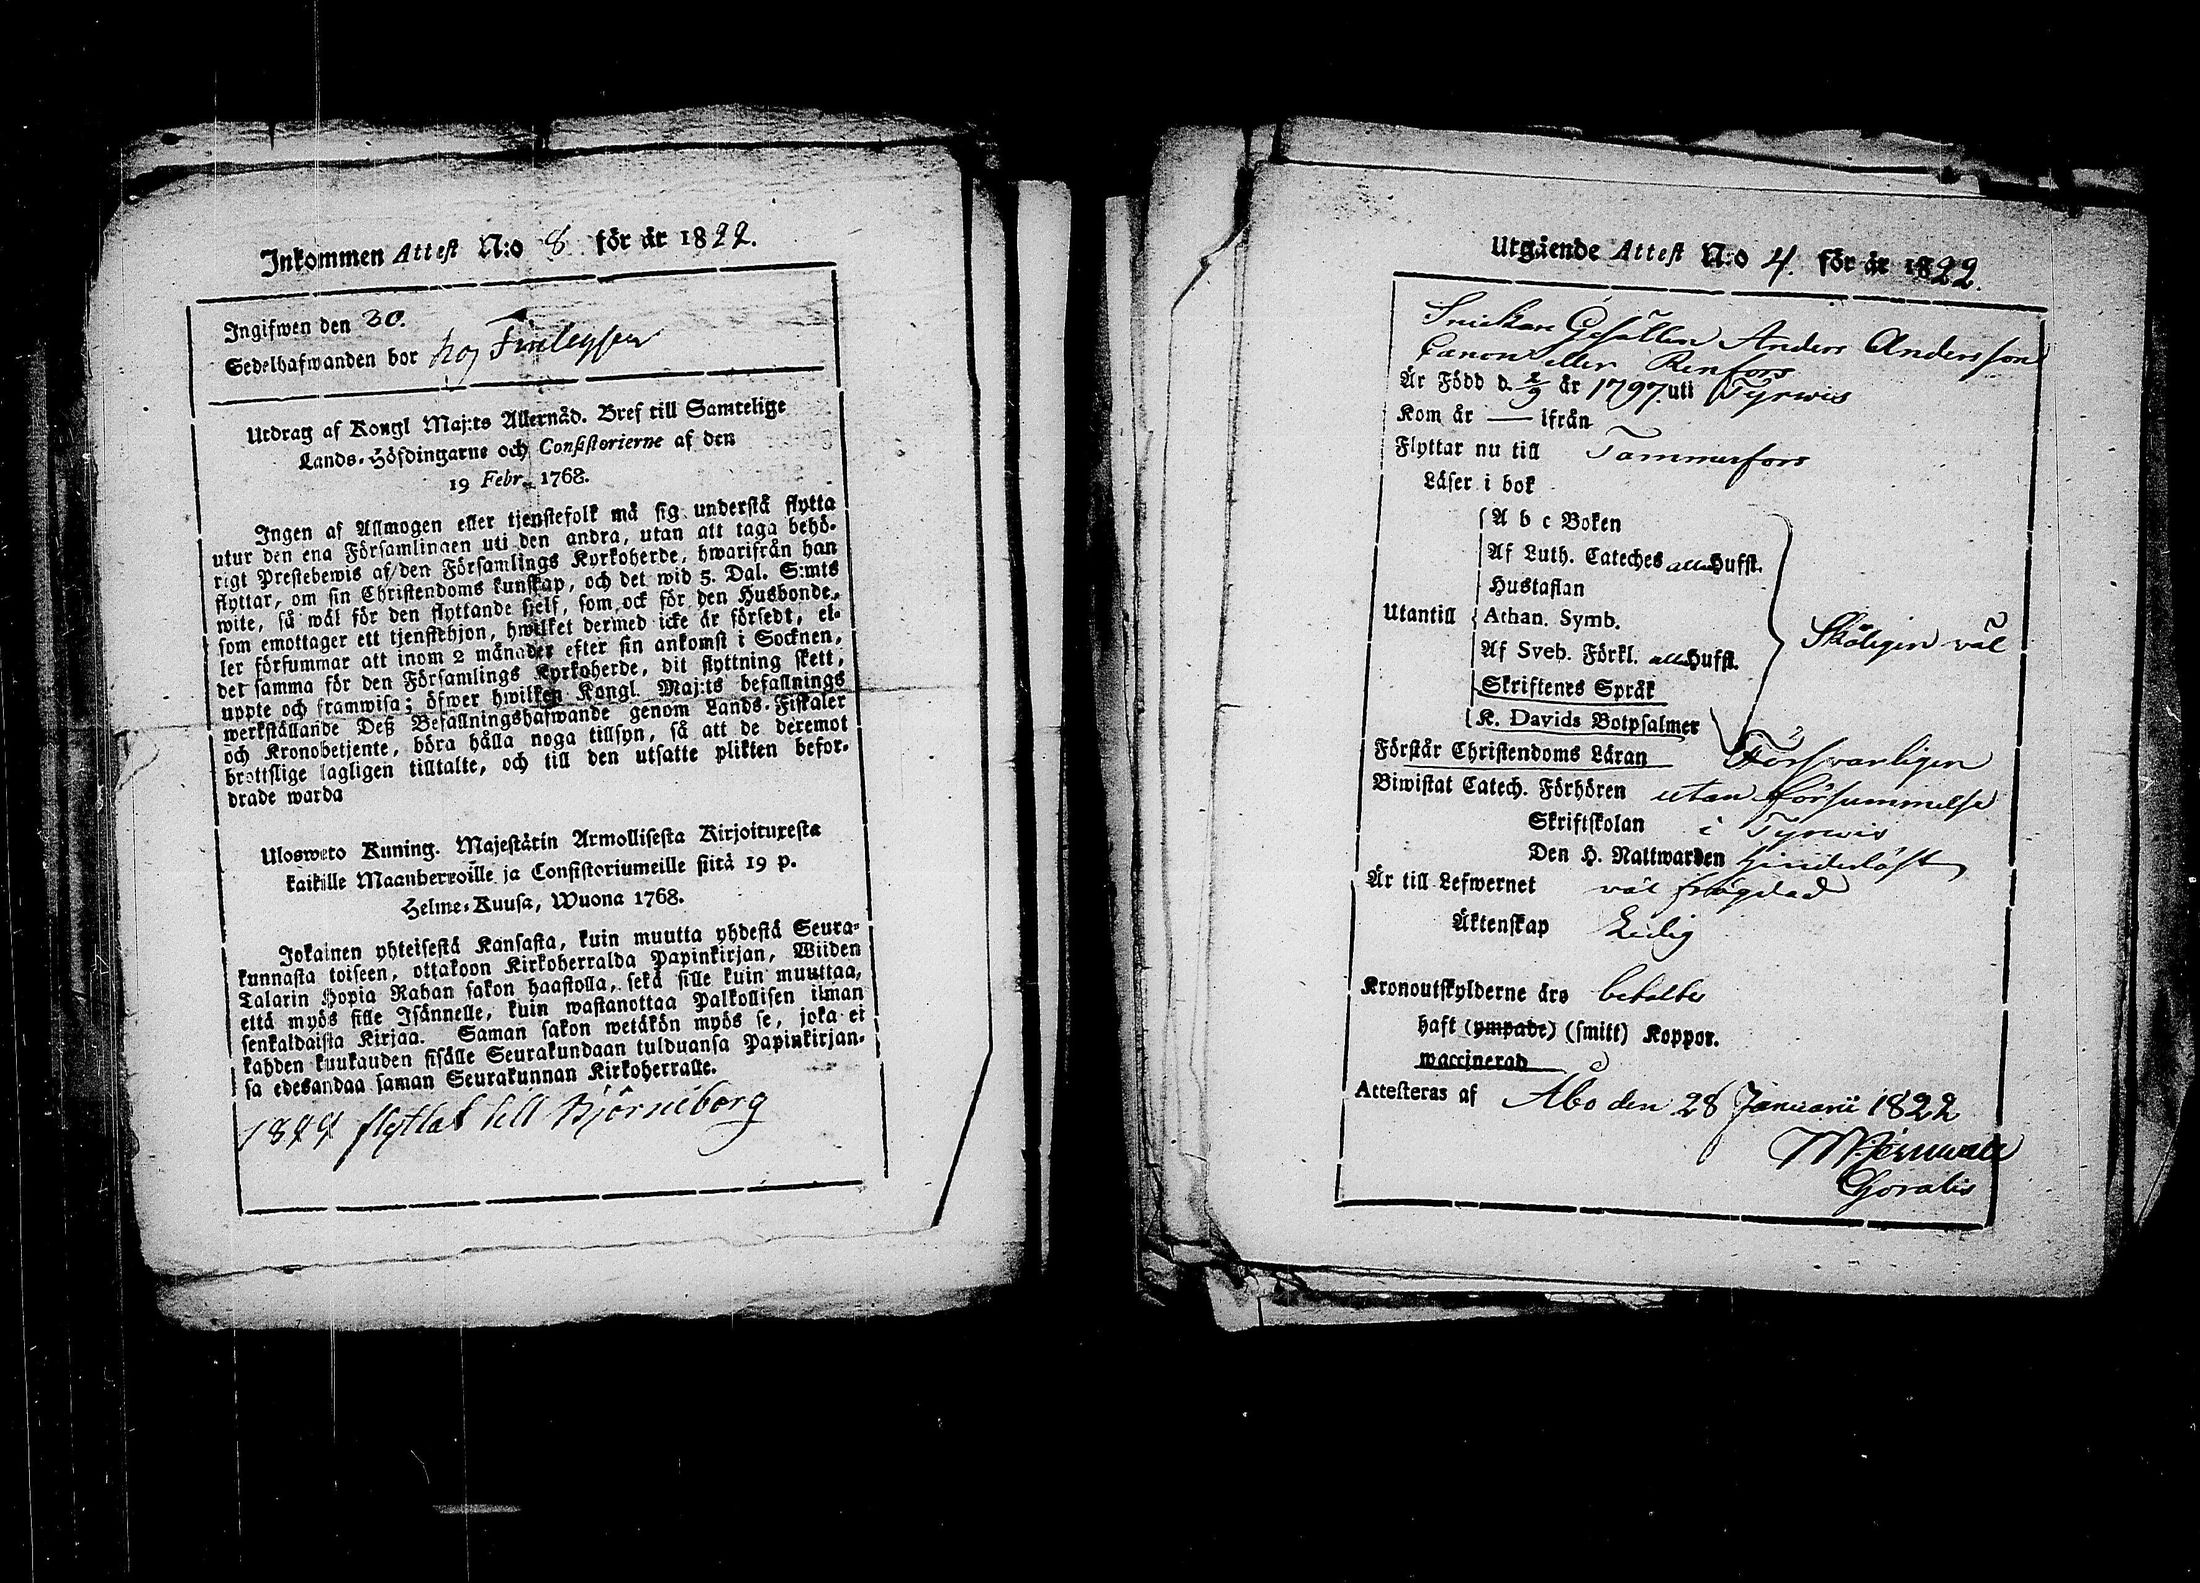 Inkommen Attest N:o 8 för år 1822.
Ingifwen den 30.
Sedelhafwanden bor hos Finleyson
Utdrag af Kongl Maj:ts Allernåd. Bref till Samtelige
Lands-Höfdingarne och Consistorierne af den
19 Febr. 1768.
Ingen af Allmogen eller tjenstefolk må sig understå flytta
utur den ena Församlingen uti den andra, utan att taga behö-
rigt Prestebewis af den Församlings Kyrkoherde, hwarifrån han
flyttar, om sin Christendoms kunskap, och det wid 5. Dal. S:mts
wite, så wäl för den flyttande sjelf, som ock för den Husbonde,
som emottager ett tjenstehjon, hwilket dermed icke är försedt, el-
ler försummar att inom 2 månader efter sin ankomst i Socknen,
det samma för den Församlings Kyrkoherde, dit flyttning skett,
uppte och framwisa; öfwer hwilken Kongl. Maj:ts befallnings
werkställande Deß Befallningshafwande genom Lands-Fiskaler
och Kronobetjente, böra hålla noga tillsyn, så att de deremot
brottslige lagligen tilltalte, och till den utsatte plikten befor-
drade warda
Ulosweto Kuning. Majestätin Armollisesta Kirjoituxesta
kaikille Maanherroille ja Consistoriumeille siitä 19 p.
Helme-Kuusa, Wuona 1768.
Jokainen yhteisestä Kansasta, kuin muutta yhdestä Seura-
kunnasta toiseen, ottakoon Kirkoherralda Papinkirjan, Wiiden
Talarin Hopia Rahan sakon haastolla, sekä sille kuin muuttaa,
että myös sille Isännelle, kuin wastanottaa Palkollisen ilman
senkaldaista Kirjaa. Saman sakon wetäkön myös se, joka ei
kahden kuukauden sisälle Seurakundaan tulduansa Papinkirjan-
sa edesandaa saman Seurakunnan Kirkoherralle.
1824 flyttat till Björneborg
Utgående Attest N:o 4. för år 1822.
Snickare Gesällen Anders Andersson
Canon eller Renfors
Är Född d. 2/9 år 1797. uti Tyrwis
Kom år — ifrån
Flyttar nu till Tammerfors
Läser i bok
A b c Boken
Af Luth. Cateches alla Hufst.
Hustaflan
Utantill Athan. Symb. Skäligen väl
Af Sveb. Förkl. alla Hufst.
Skriftenes Språk
K. Davids Botpsalmer
Förstår Christendoms Läran Försvarligen
Biwistat Catech. Förhören utan försummelse
Skriftskolan i Tyrwis
Den H. Nattwarden
Är till Lefwernet väl frägdad
Äktenskap Ledig
Kronoutskylderne äro betalte
haft (ympade) (smitt) Koppor.
waccinerad
Attesteras af Åbo den 28 Januarii 1822